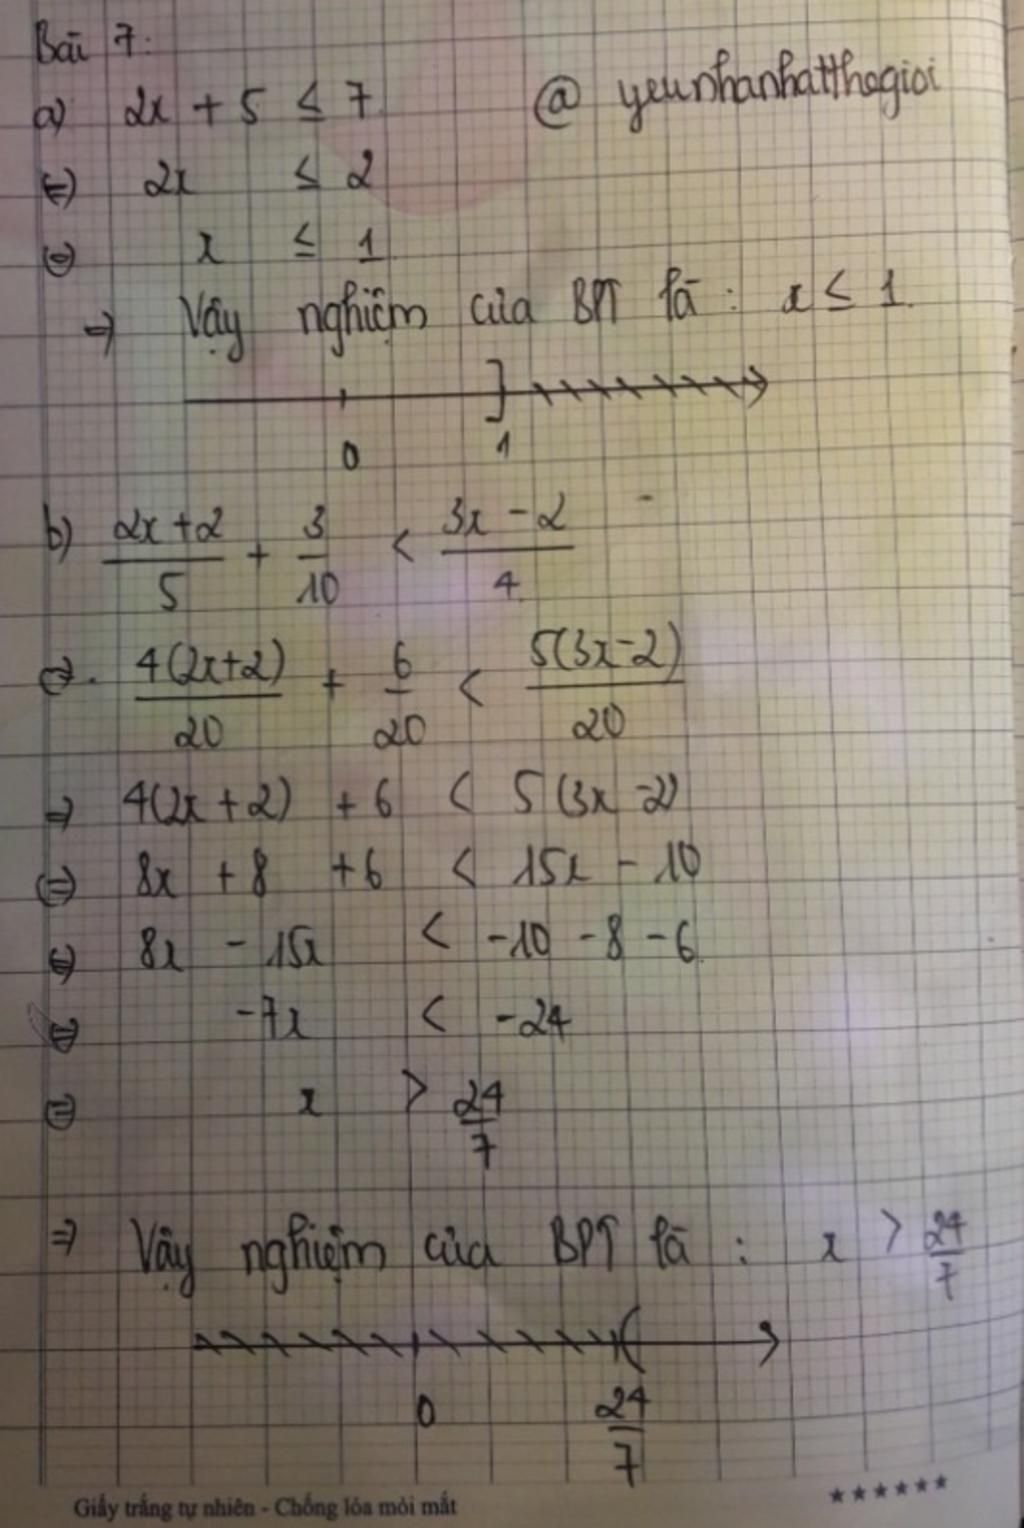 Bài 7:
a) 2x + 5 ≤ 7 @ yeunhanhatthegioi
⇔ 2x ≤ 2
⇔ x ≤ 1
⇒ Vậy nghiệm của BPT là : x ≤ 1.
0 1
b) (2x+2)/5 + 3/10 < (3x-2)/4
⇔ 4(2x+2)/20 + 6/20 < 5(3x-2)/20
⇒ 4(2x+2) + 6 < 5(3x-2)
⇔ 8x + 8 + 6 < 15x - 10
⇔ 8x - 15x < -10 - 8 - 6
⇔ -7x < -24
⇔ x > 24/7
⇒ Vậy nghiệm của BPT là : x > 24/7
0 24/7
Giấy trắng tự nhiên - Chống lóa mỏi mắt ★★★★★★